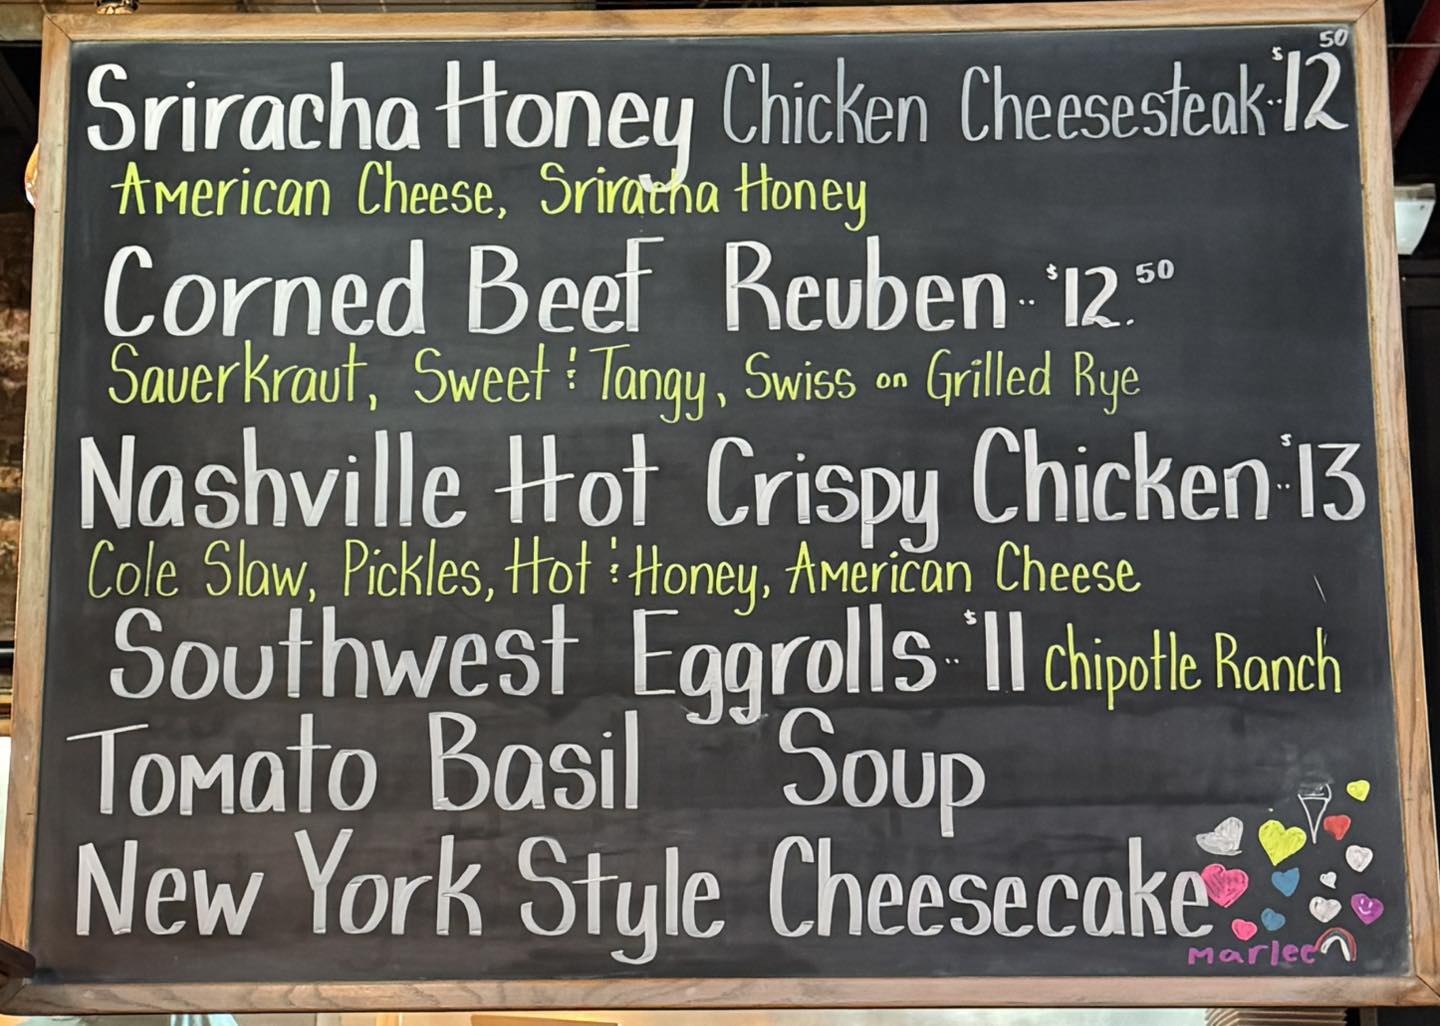 Sriracha Honey Chicken Cheesesteak..$12 50
American Cheese, Sriracha Honey
Corned Beef Reuben..$12.50
Sauerkraut, Sweet & Tangy, Swiss on Grilled Rye
Nashville Hot Crispy Chicken..$13
Cole Slaw, Pickles, Hot & Honey, American Cheese
Southwest Eggrolls..$11 Chipotle Ranch
Tomato Basil Soup
New York Style Cheesecake
Marlee